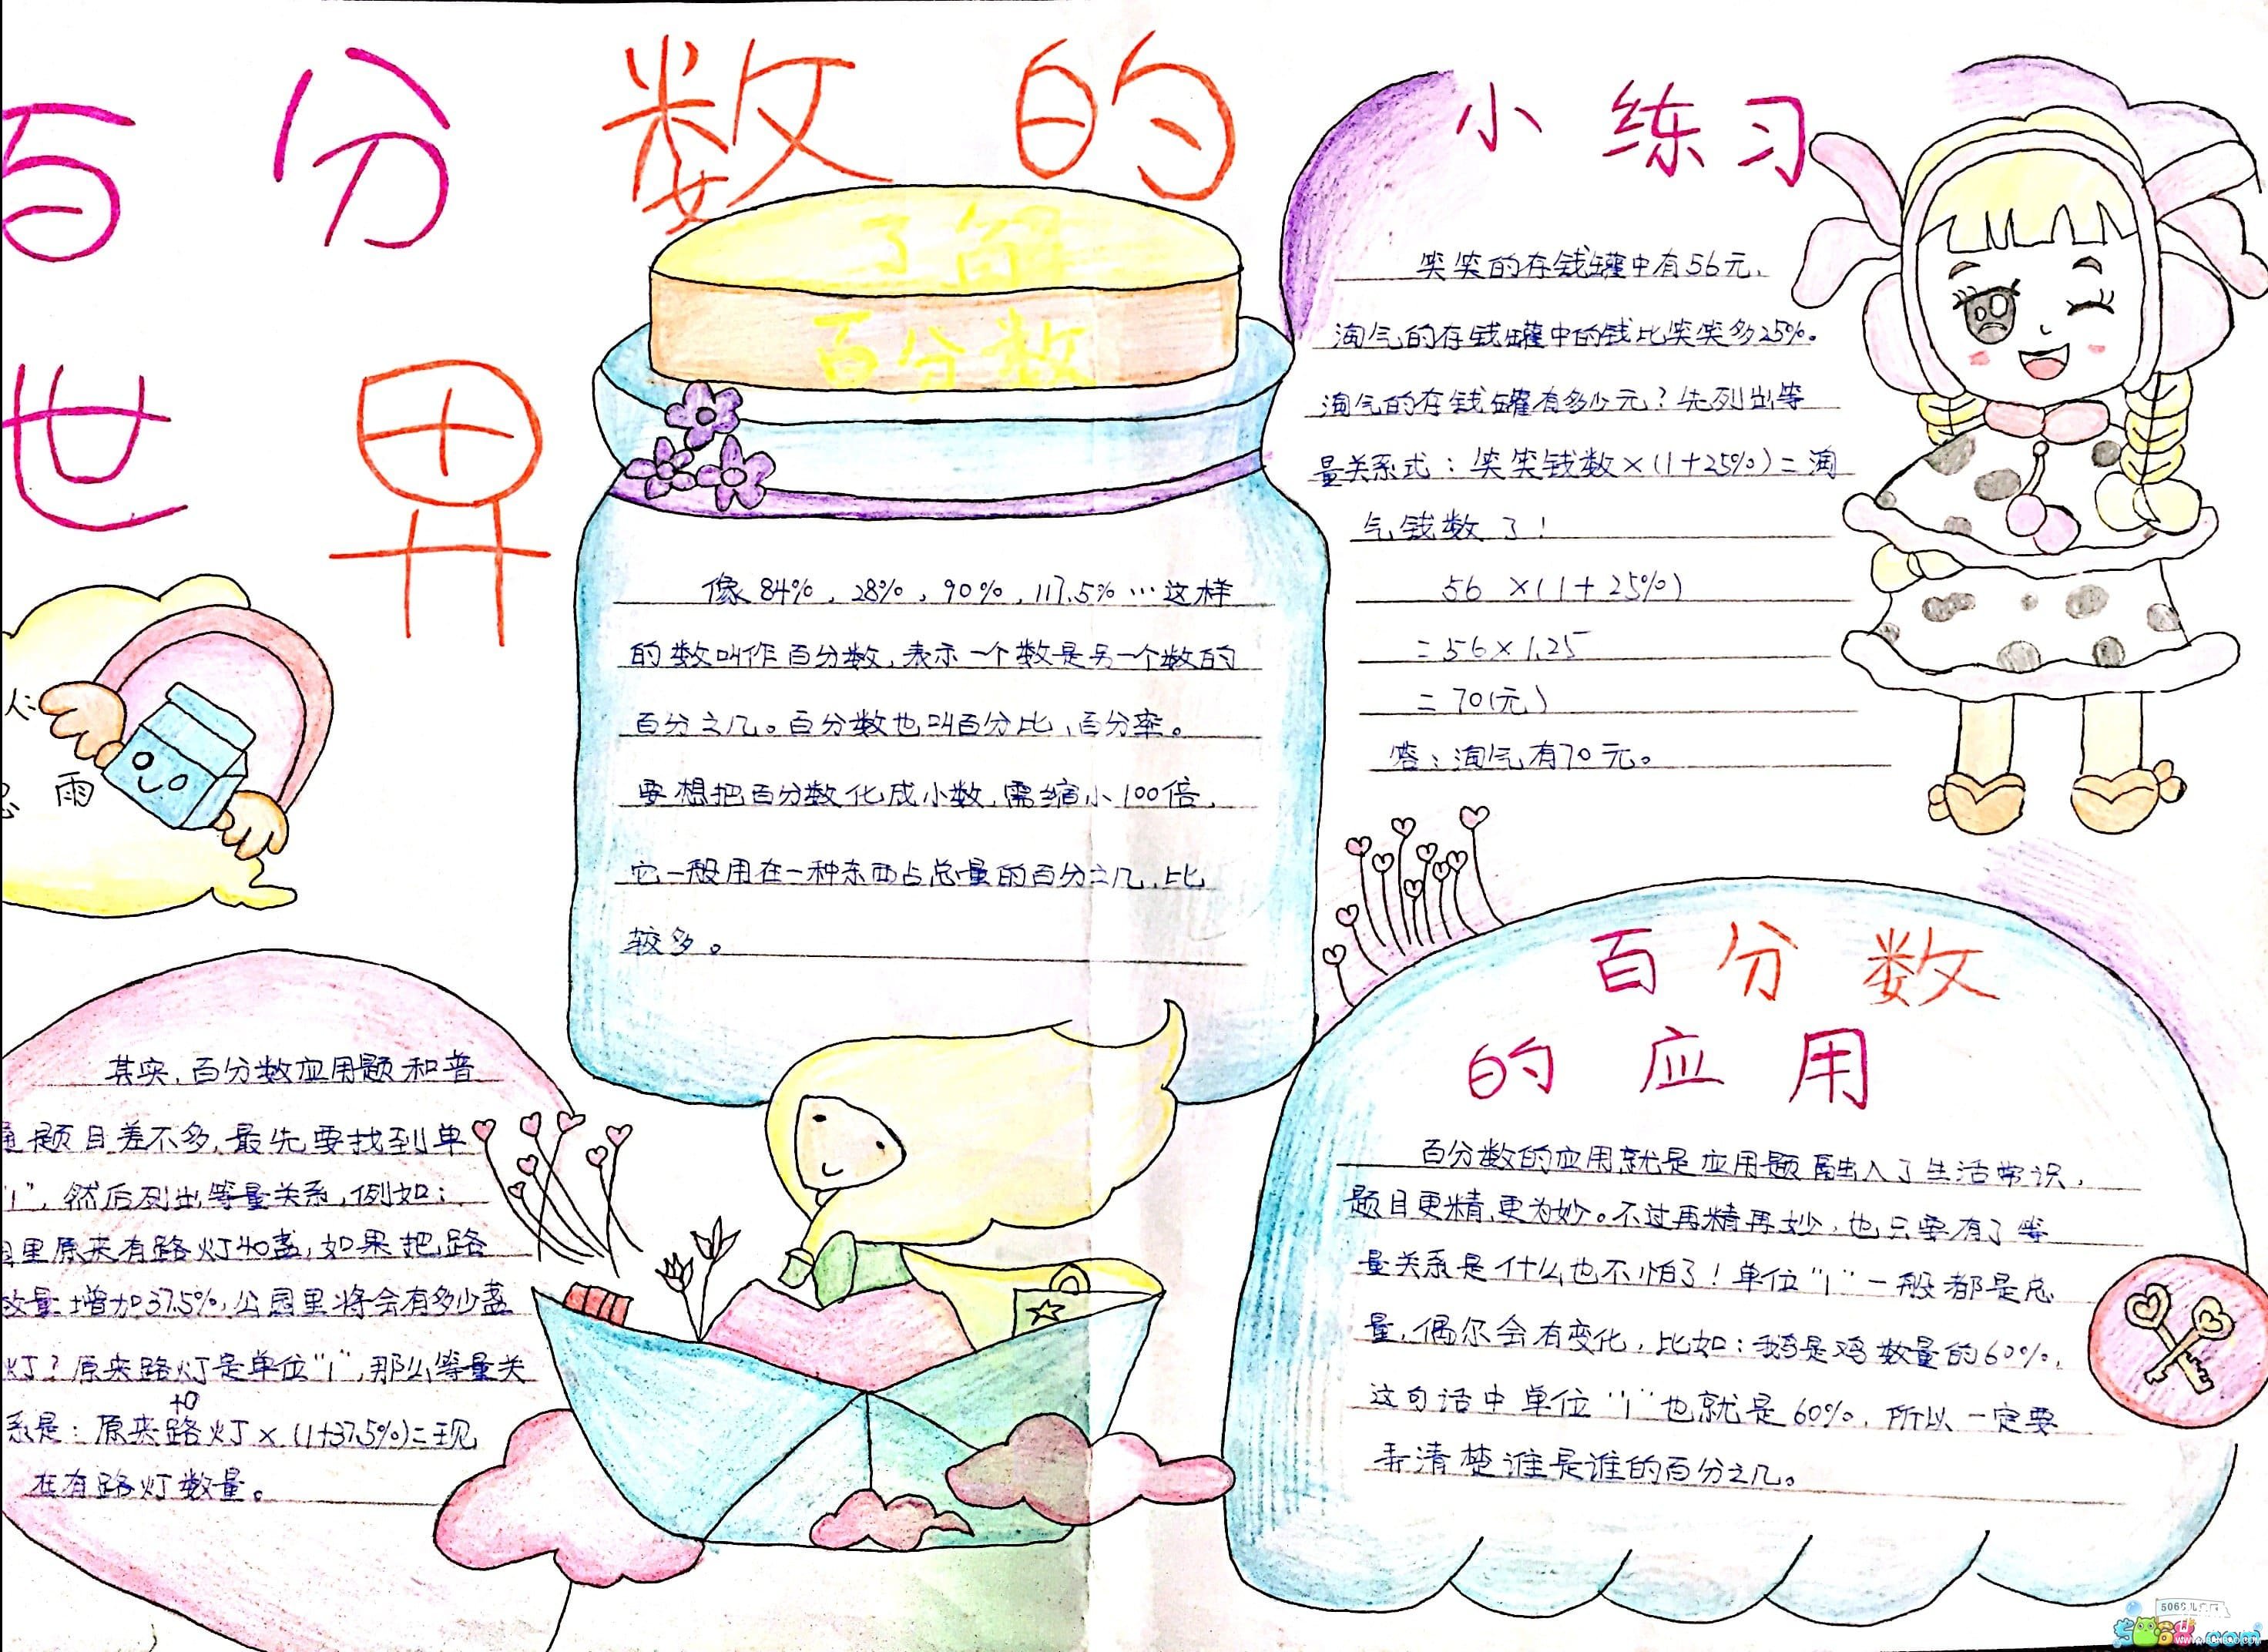 百分数的
世界
了解
百分数
像84%，28%，90%，117.5%…这样
的数叫作百分数，表示一个数是另一个数的
百分之几。百分数也叫百分比、百分率。
要想把百分数化成小数，需缩小100倍，
它一般用在一种东西占总量的百分之几，比
较多。
小练习
笑笑的存钱罐中有56元，
淘气的存钱罐中的钱比笑笑多25%。
淘气的存钱罐有多少元？先列出等
量关系式：笑笑钱数×(1+25%)=淘
气钱数了！
56×(1+25%)
=56×1.25
=70(元)
答：淘气有70元。
雨
其实，百分数应用题和普
通题目差不多，最先要找到单
"1"，然后列出等量关系，例如：
里原来有路灯40盏，如果把路
数量增加37.5%，公园里将会有多少盏
灯？原来路灯是单位"1"，那么等量关
系是：原来路灯×(1+37.5%)=现
在有路灯数量。
百分数
的应用
百分数的应用就是应用题融入了生活常识，
题目更精，更为妙。不过再精再妙，也只要有了等
量关系是什么也不怕了！单位"1"一般都是总
量，偶尔会有变化，比如：鹅是鸡数量的60%，
这句话中单位"1"也就是60%，所以一定要
弄清楚谁是谁的百分之几。